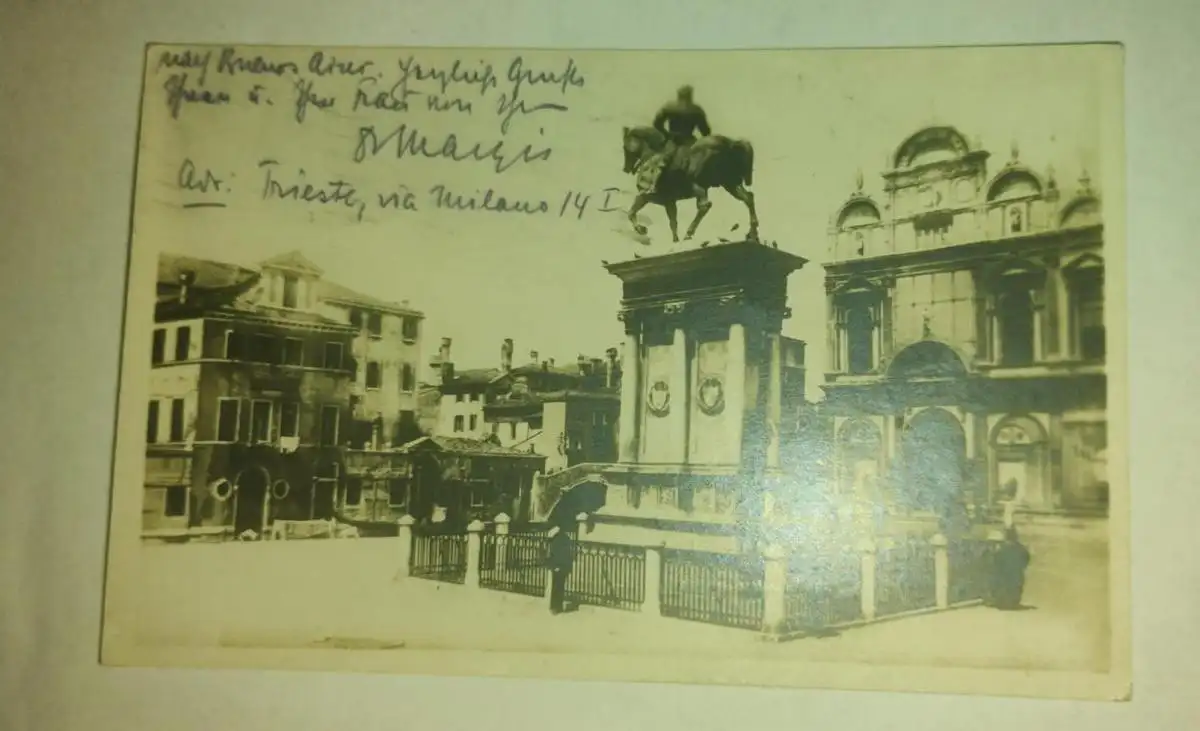 nach Buenos Aires. Herzliche Grüße
Ihnen u. Ihrer Frau von Ihrem
Adr: Trieste, via Milano 14 I